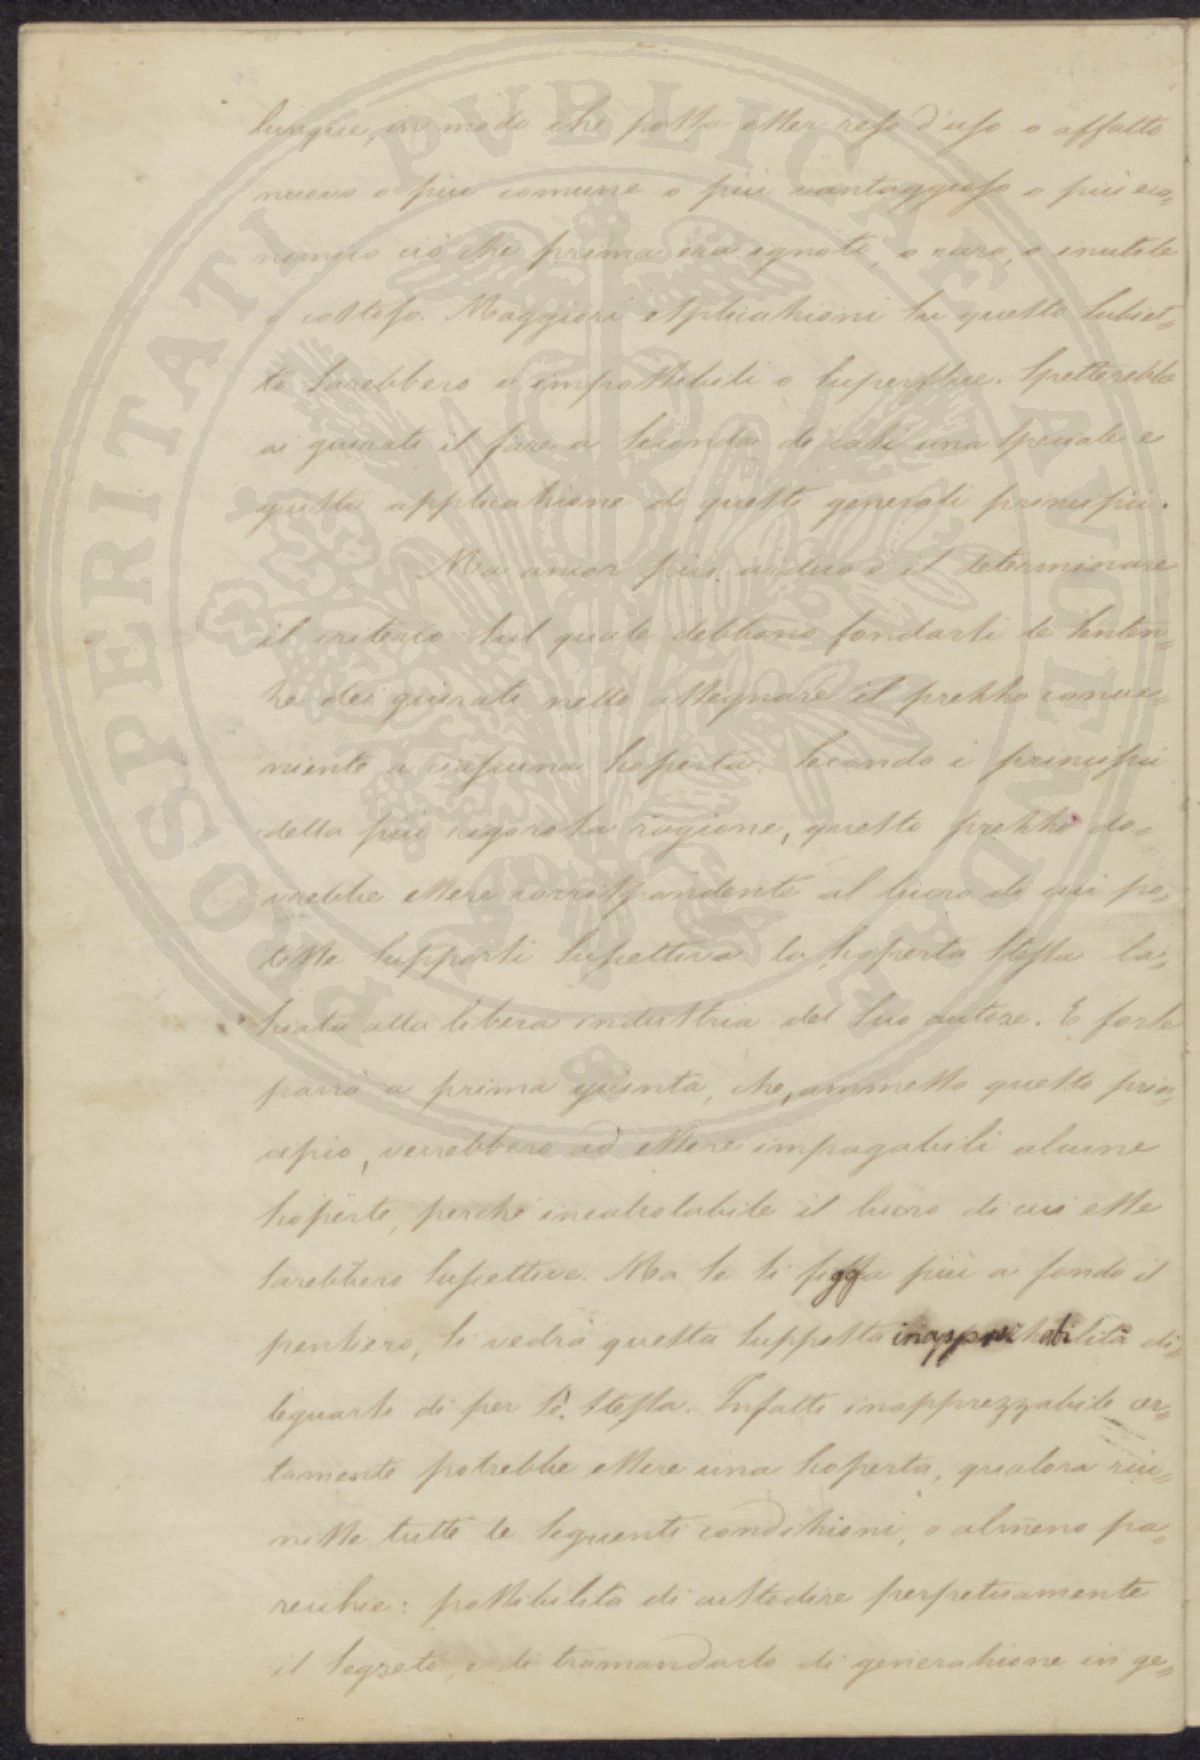 lunque, in modo che possa esser reso d'uso o affatto
nuovo o più comune o più vantaggioso o più eco=
nomico ciò che prima era ignoto, o raro, o inutile
o costoso. Maggiori esplicazioni su questo subiet=
to sarebbero o impossibili o superflue. Spetterebbe
ai giurati il fare a seconda di casi una speciale e
giusta applicazione di questi generali principii.
Ma ancor più arduo è il determinare
il criterio sul quale debbano fondarsi le senten=
ze dei giurati nello assegnare il prezzo conve=
niente a ciascuna scoperta. Secondo i principii
della più rigorosa ragione, questo prezzo do=
vrebbe essere corrispondente al lucro di cui po=
tesse supporsi suscettiva la scoperta stessa la=
sciata alla libera industria del suo autore. E forse
parrà a prima giunta, che, ammesso questo prin=
cipio, verrebbero ad essere impagabili alcune
scoperte, perché incalcolabile il lucro di cui esse
sarebbero suscettive. Ma se si figga più a fondo il
pensiero, si vedrà questa supposta inapprezzabilità di=
leguarsi di per sè stessa. Infatti inapprezzabile cer=
tamente potrebbe essere una scoperta, qualora riu=
nisse tutte le seguenti condizioni, o almeno pa=
recchie: possibilità di custodire perpetuamente
il segreto, e di tramandarlo di generazione in ge=
PROSPERITATI PVBLICAE AVGENDAE